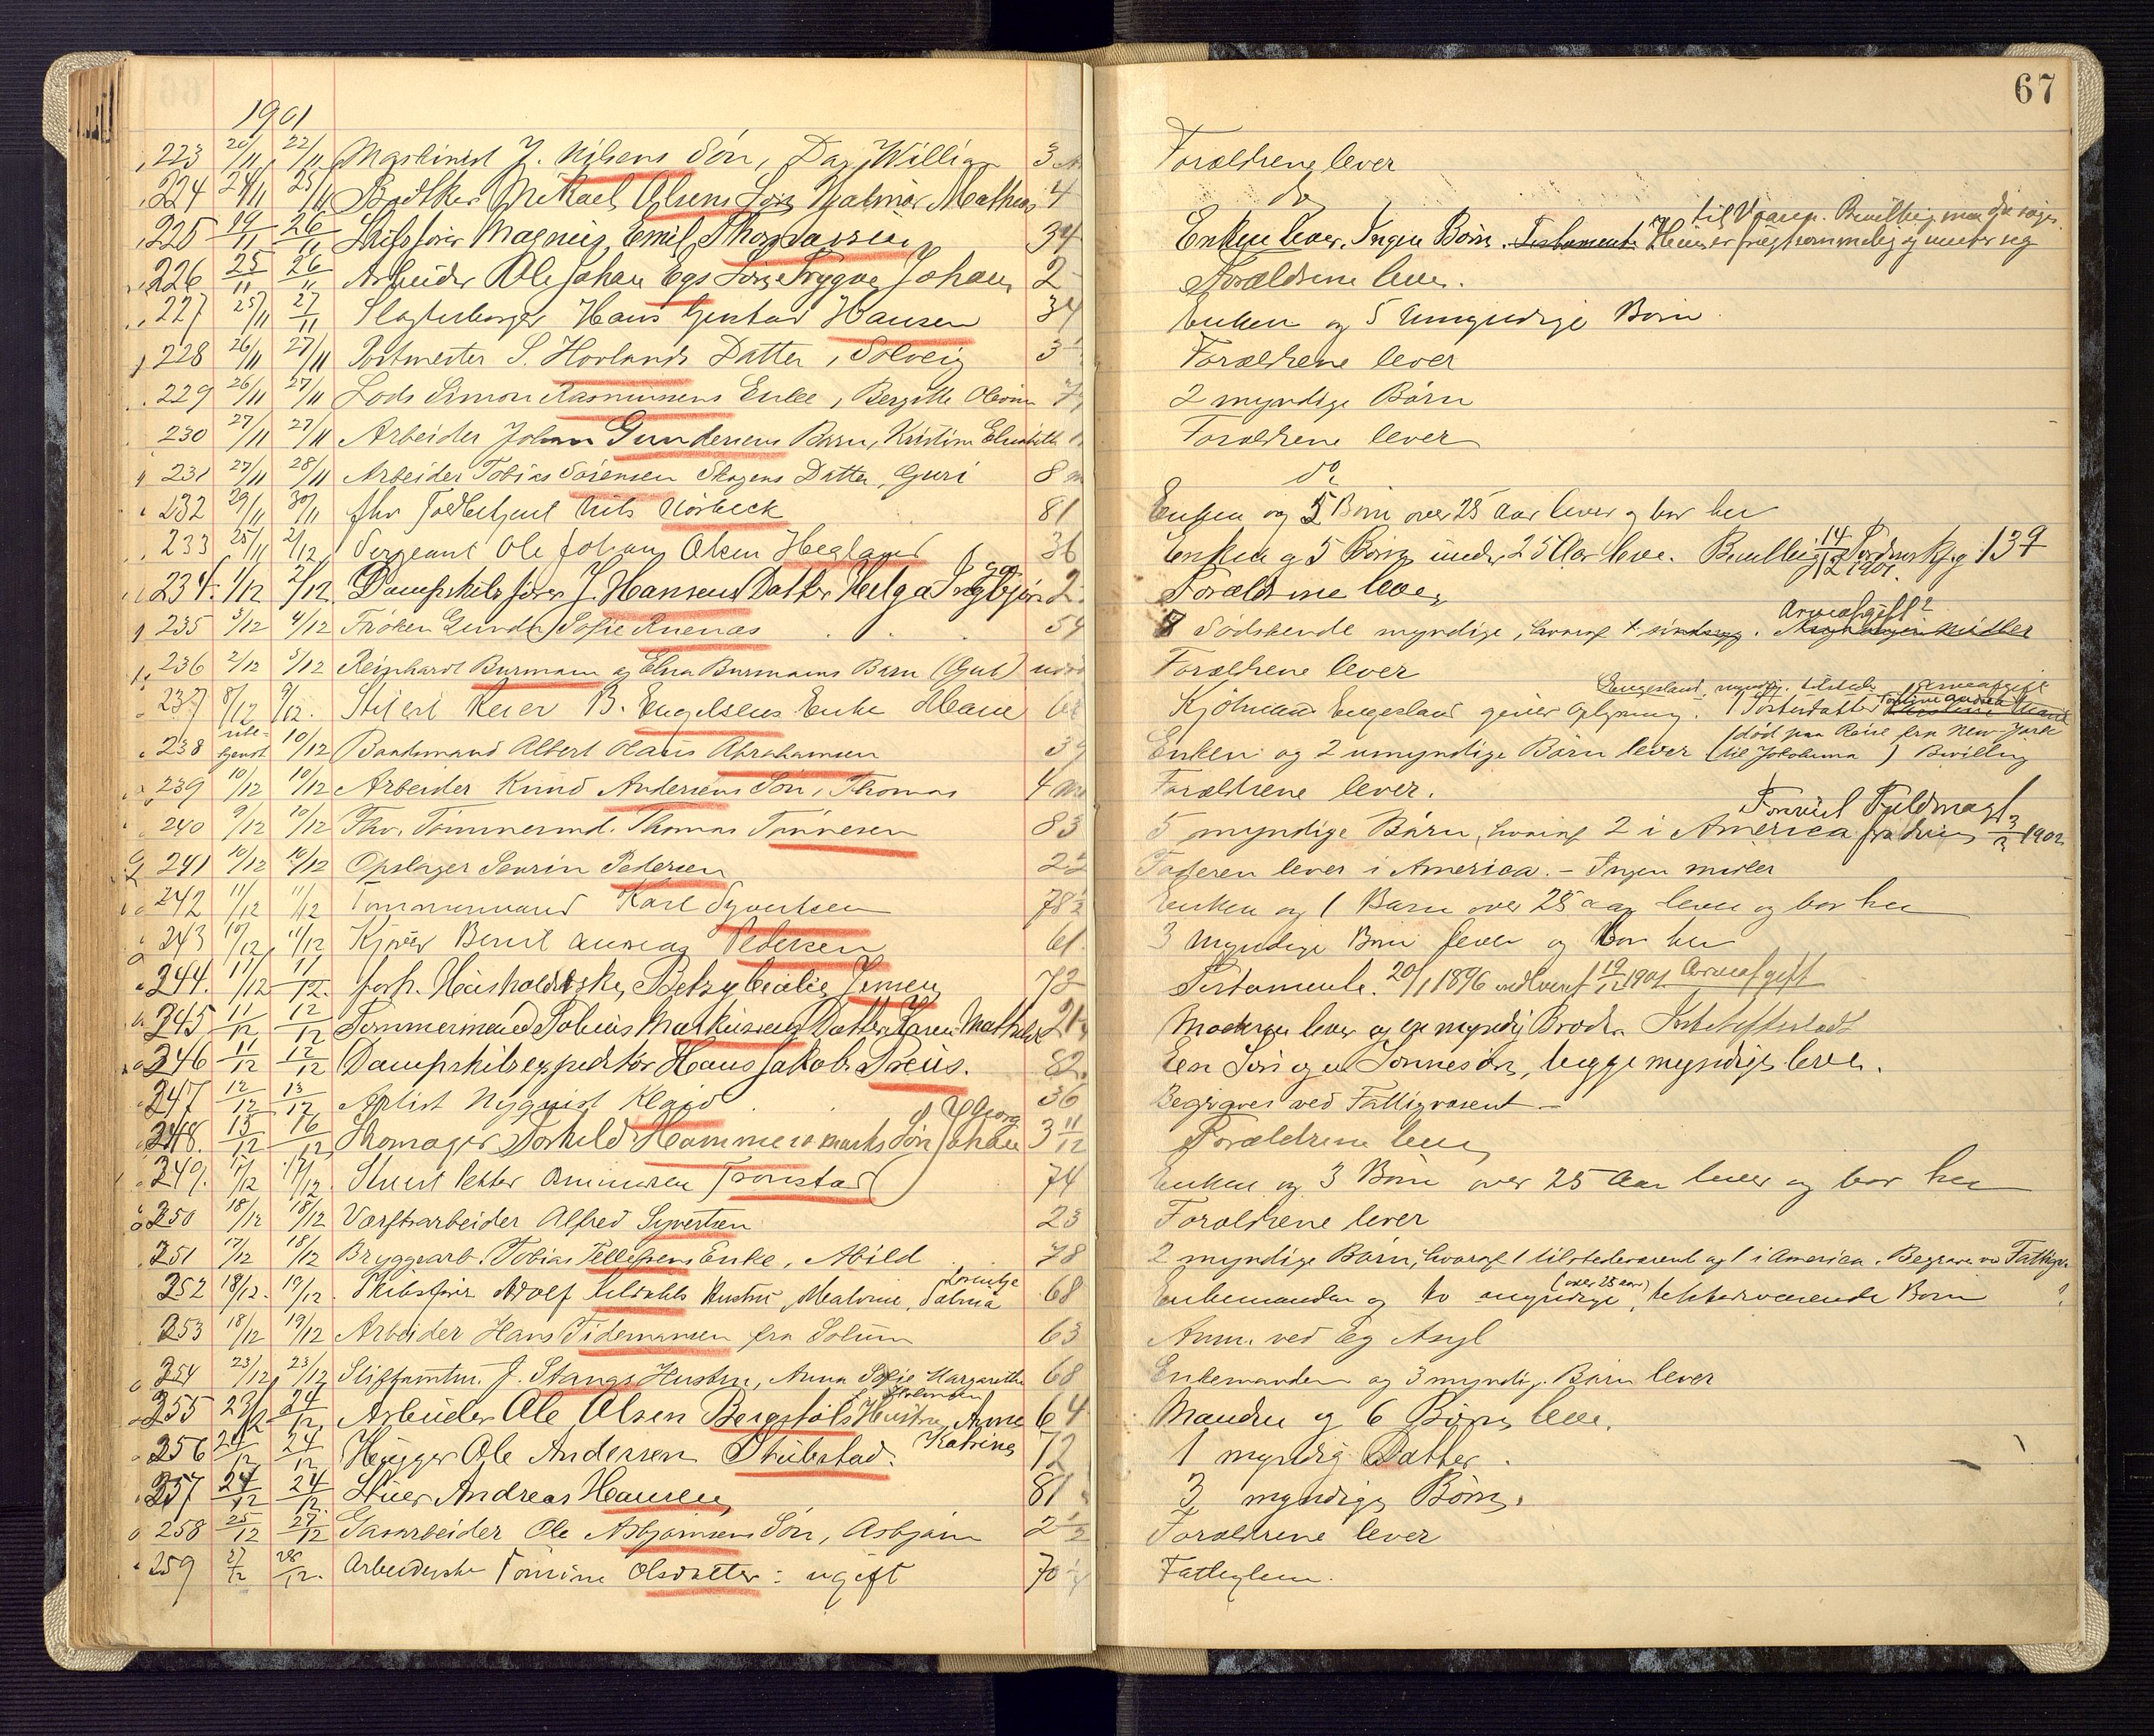 67
1901
223 20/11 22/11 Maskinist J. Nilsens Søn, Dag William 3 Forældrene lever
224 24/11 25/11 Bødker Mikael Olsens Søn Hjalmar Mathias 4 do
til Vrangp. Bevilling maa
225 19/11 26/11 Skibsfører Magnus Emil Thomassen 34 Enken lever. Ingen Børn. Testamente
226 25/11 26/11 Arbeider Ole Johan Egs Søn Trygve Johan 2 Forældrene lever.
227 25/11 27/11 Slagterborger Hans Gustav Hansen 34 Enken og 5 umyndige Børn
228 26/11 27/11 Postmester S. Hovlands Datter, Solveig 3 Forældrene lever
229 26/11 27/11 Lods Simon Rasmussens Enke, Bergitte Olevine 2 myndige Børn
230 27/11 27/11 Arbeider Johan Gundersens Barn, Kristine Elisabeth Forældrene lever
231 27/11 28/11 Arbeider Tobias Sørensen Skogens Datter, Guri 8 m do
232 29/11 30/11 fhv Toldbetjent Nils Nørbeck 81 Enken og 5 Børn over 25 Aar lever og bor her
233 25/11 2/12 Sergeant Ole Johan Olsen Hegland 36 Enken og 5 Børn under 25 Aar leve. Bevilling 14/12 1901. 139
234. 1/12 2/12 Dampskibsfører J. Hansens Datter Helga Ingebjør 2 Forældrene leve
Arveafgift?
235 3/12 4/12 Frøken Gunda Sofie Ruenæs 54 8 Sødskende myndige, hvoraf 1
236 2/12 5/12 Reinhardt Burmann og Elna Burmanns Barn (Gut) Forældrene lever
Engesland, myndig, tilstede Arveafgift
237 8/12 9/12. B. Engelsens Enke Kjøbmand Engesland giver Oplysning. 1 Fosterdatter
(død paa Reise fra New-York
238 ube-kjendt 10/12 Baadsmand Albert Olaus Abrahamsen 39 Enken og 2 umyndige Børn lever til Jokohama ) Bevilling
239 10/12 10/12 Arbeider Knud Andersens Søn, Thomas 4 Forældrene lever.
240 9/12 10/12 Fhv. Tømmermd. Thomas Tønnesen 83 5 myndige Børn, hvoraf 2 i America 3/2 1902
241 10/12 10/12 Opslager Severin Pedersen 22 Faderen lever i America. – Ingen midler
242 11/12 11/12 Tømmermand Karl Syvertsen 78½ Enken og 1 Barn over 25 aar lever og bor her
243 10/12 11/12 Kjører Bernt Andreas Pedersen 61 3 myndige Børn lever og bor her
244. 11/12 11/12. forh. Husholderske, Betzy Cecilie Jensen 73 Testamente. 20/1 1896 vedlevert 19/12 1901 Arveafgift
245 11/12 12/12 Tømmermand Tobias Markussens Datter Karen Mathilde 21 Moderen lever og en myndig Broder.
246 11/12 12/12 Dampskibsexpeditør Hans Jakob Preus. 82 Een Søn og en Sønnesøn, begge myndige leve.
247 12/12 13/12 Artist Nyquist 36 Begraves ved Fattigvæsent –
Georg
248. 15/12 16/12 Skomager Torkild Hammersmarks Søn Johan 3 11/12 Forældrene leve
249. 17/12 17/12. Petter Amundsen Fronstad 74 Enken og 3 Børn over 25 Aar lever og bor her
250 18/12 18/12 Værftsarbeider Alfred Syvertsen 23 Forældrene lever
251 17/12 18/12 Bryggearb. Tobias Tellefsens Enke, Abild 78 2 myndige Børn, hvoraf 1 tilstedeværend og 1 i America. Begraves v. Fattigv.
252 18/12. 19/12. Skibsfører Adolf Hustru, Malvine, 68 Enkemanden og to myndige (over 25 aar), tilstedeværende Børn ?
253 18/12 19/12 Arbeider Hans Tidemansen fra Solum 63 Anm. ved Eg Asyl
254 23/12 23/12 Stiftamtm. J. Stangs Hustru, Anna Sofie Margarethe 68 Enkemanden og 3 myndige Børn lever
255 23/12 24/12 Arbeider Ole Olsen Bergstøls Hustru Anne 64 Manden og 6 Børn leve.
Katrine
256 24/12 24/12 Hugger Ole Andersen 72 1 myndig Datter.
257 24/12 24/12 Stuer Andreas Hansen 81 3 myndige Børn.
258 25/12 27/12 Gasarbeider Ole Asbjørnsens Søn, Asbjørn 2½ Forældrene lever
259 27/12 28/12. Arbeiderske Tomine Olsdatter: ugift 70 Fattiglem.